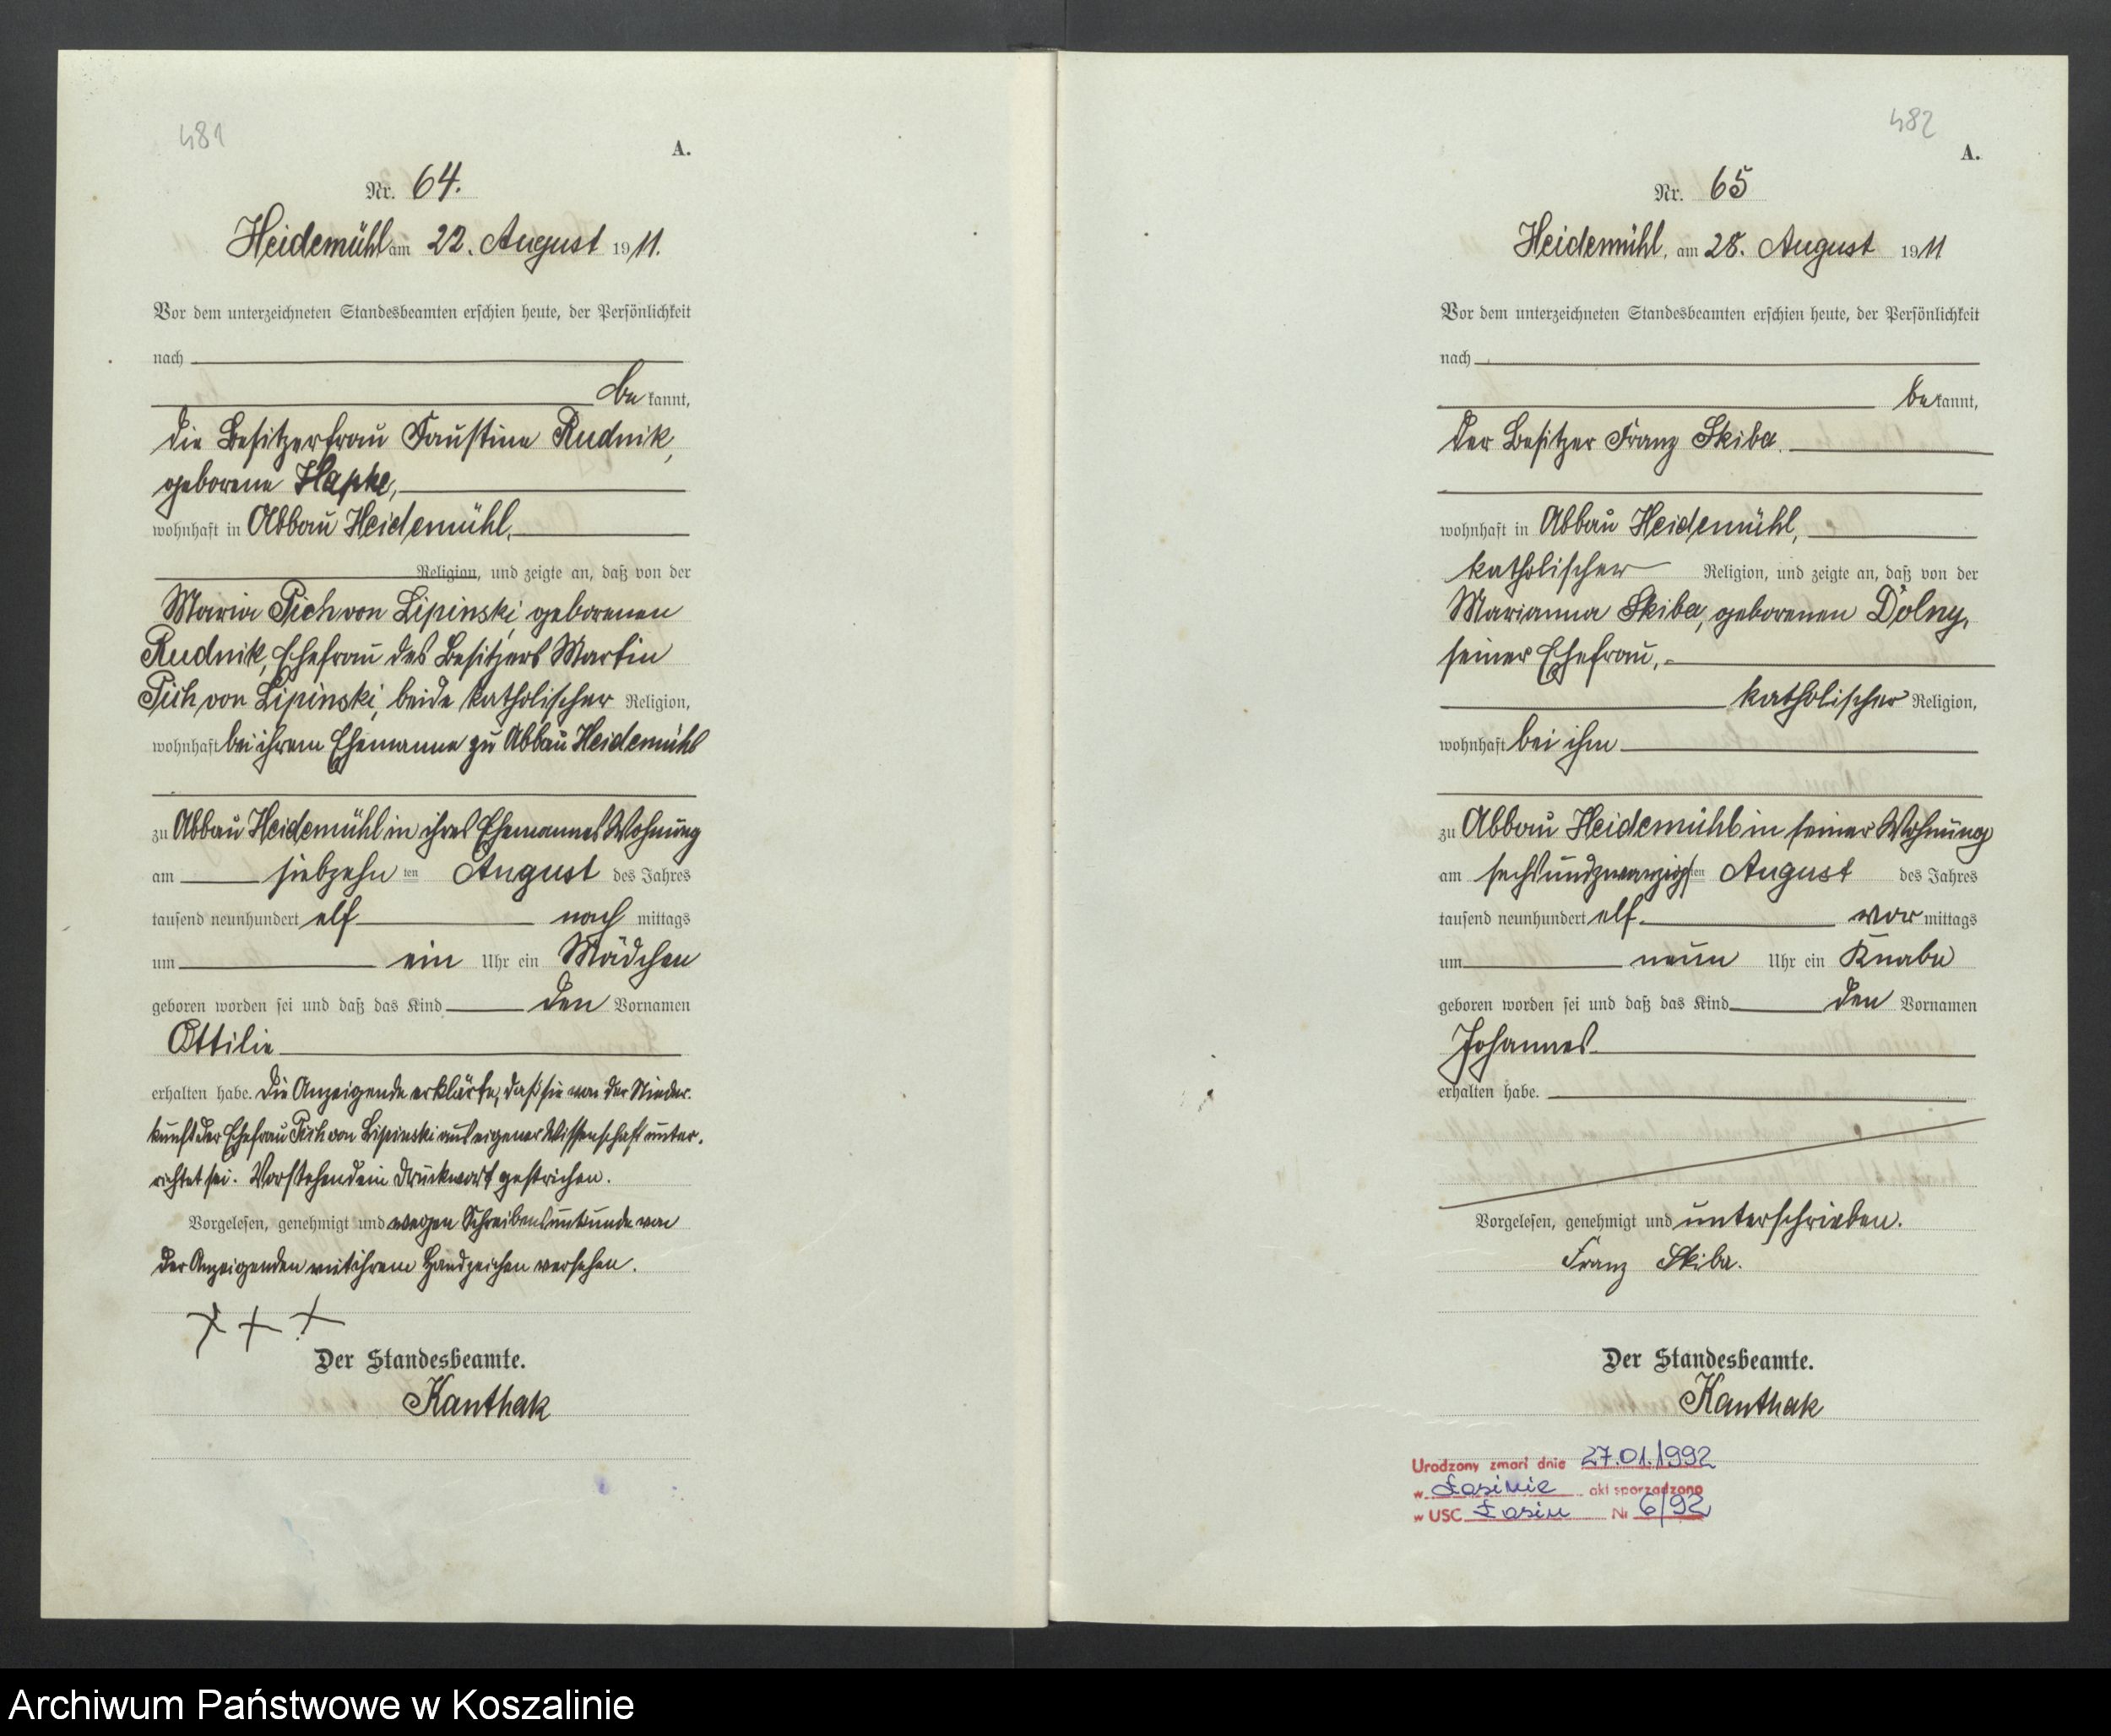 481
A.
Nr. 64.
Heidemühl am 22. August 1911.
Vor dem unterzeichneten Standesbeamten erschien heute, der Persönlichkeit
nach
bekannt,
die Besitzerfrau Faustine Rudnik,
geborene Hapke,
wohnhaft in Abbau Heidemühl,
Religion, und zeigte an, daß von der
Maria Pich von Lipinski, geborenen
Rudnik, Ehefrau des Besitzers Martin
Pich von Lipinski, beide katholischer Religion,
wohnhaft bei ihrem Ehemanne zu Abbau Heidemühl
zu Abbau Heidemühl in ihres Ehemannes Wohnung
am siebzehnten August des Jahres
tausend neunhundert elf nachmittags
um ein Uhr ein Mädchen
geboren worden sei und daß das Kind den Vornamen
Ottilie
erhalten habe. Die Anzeigende erklärte, daß sie von der Nieder-
kunft der Ehefrau Pich von Lipinski aus eigener Wissenschaft unter-
richtet sei. Vorstehend ein Druckwort gestrichen.
Vorgelesen, genehmigt und wegen Schreibensunkunde von
der Anzeigenden mit ihrem Handzeichen versehen.
+ + +
Der Standesbeamte.
Kanthak
482
A.
Nr. 65
Heidemühl, am 28. August 1911
Vor dem unterzeichneten Standesbeamten erschien heute, der Persönlichkeit
nach
bekannt,
der Besitzer Franz Skiba
wohnhaft in Abbau Heidemühl,
katholischer Religion, und zeigte an, daß von der
Marianna Skiba, geborenen Dolny,
seiner Ehefrau,
katholischer Religion,
wohnhaft bei ihm
zu Abbau Heidemühl in seiner Wohnung
am sechsundzwanzigsten August des Jahres
tausend neunhundert elf vormittags
um neun Uhr ein Knabe
geboren worden sei und daß das Kind den Vornamen
Johannes
erhalten habe.
Vorgelesen, genehmigt und unterschrieben.
Franz Skiba.
Der Standesbeamte.
Kanthak
Urodzony zmarł dnia 27.01.1992
w Łasinie akt sporządzono
w USC Łasin Nr 6/92
Archiwum Państwowe w Koszalinie